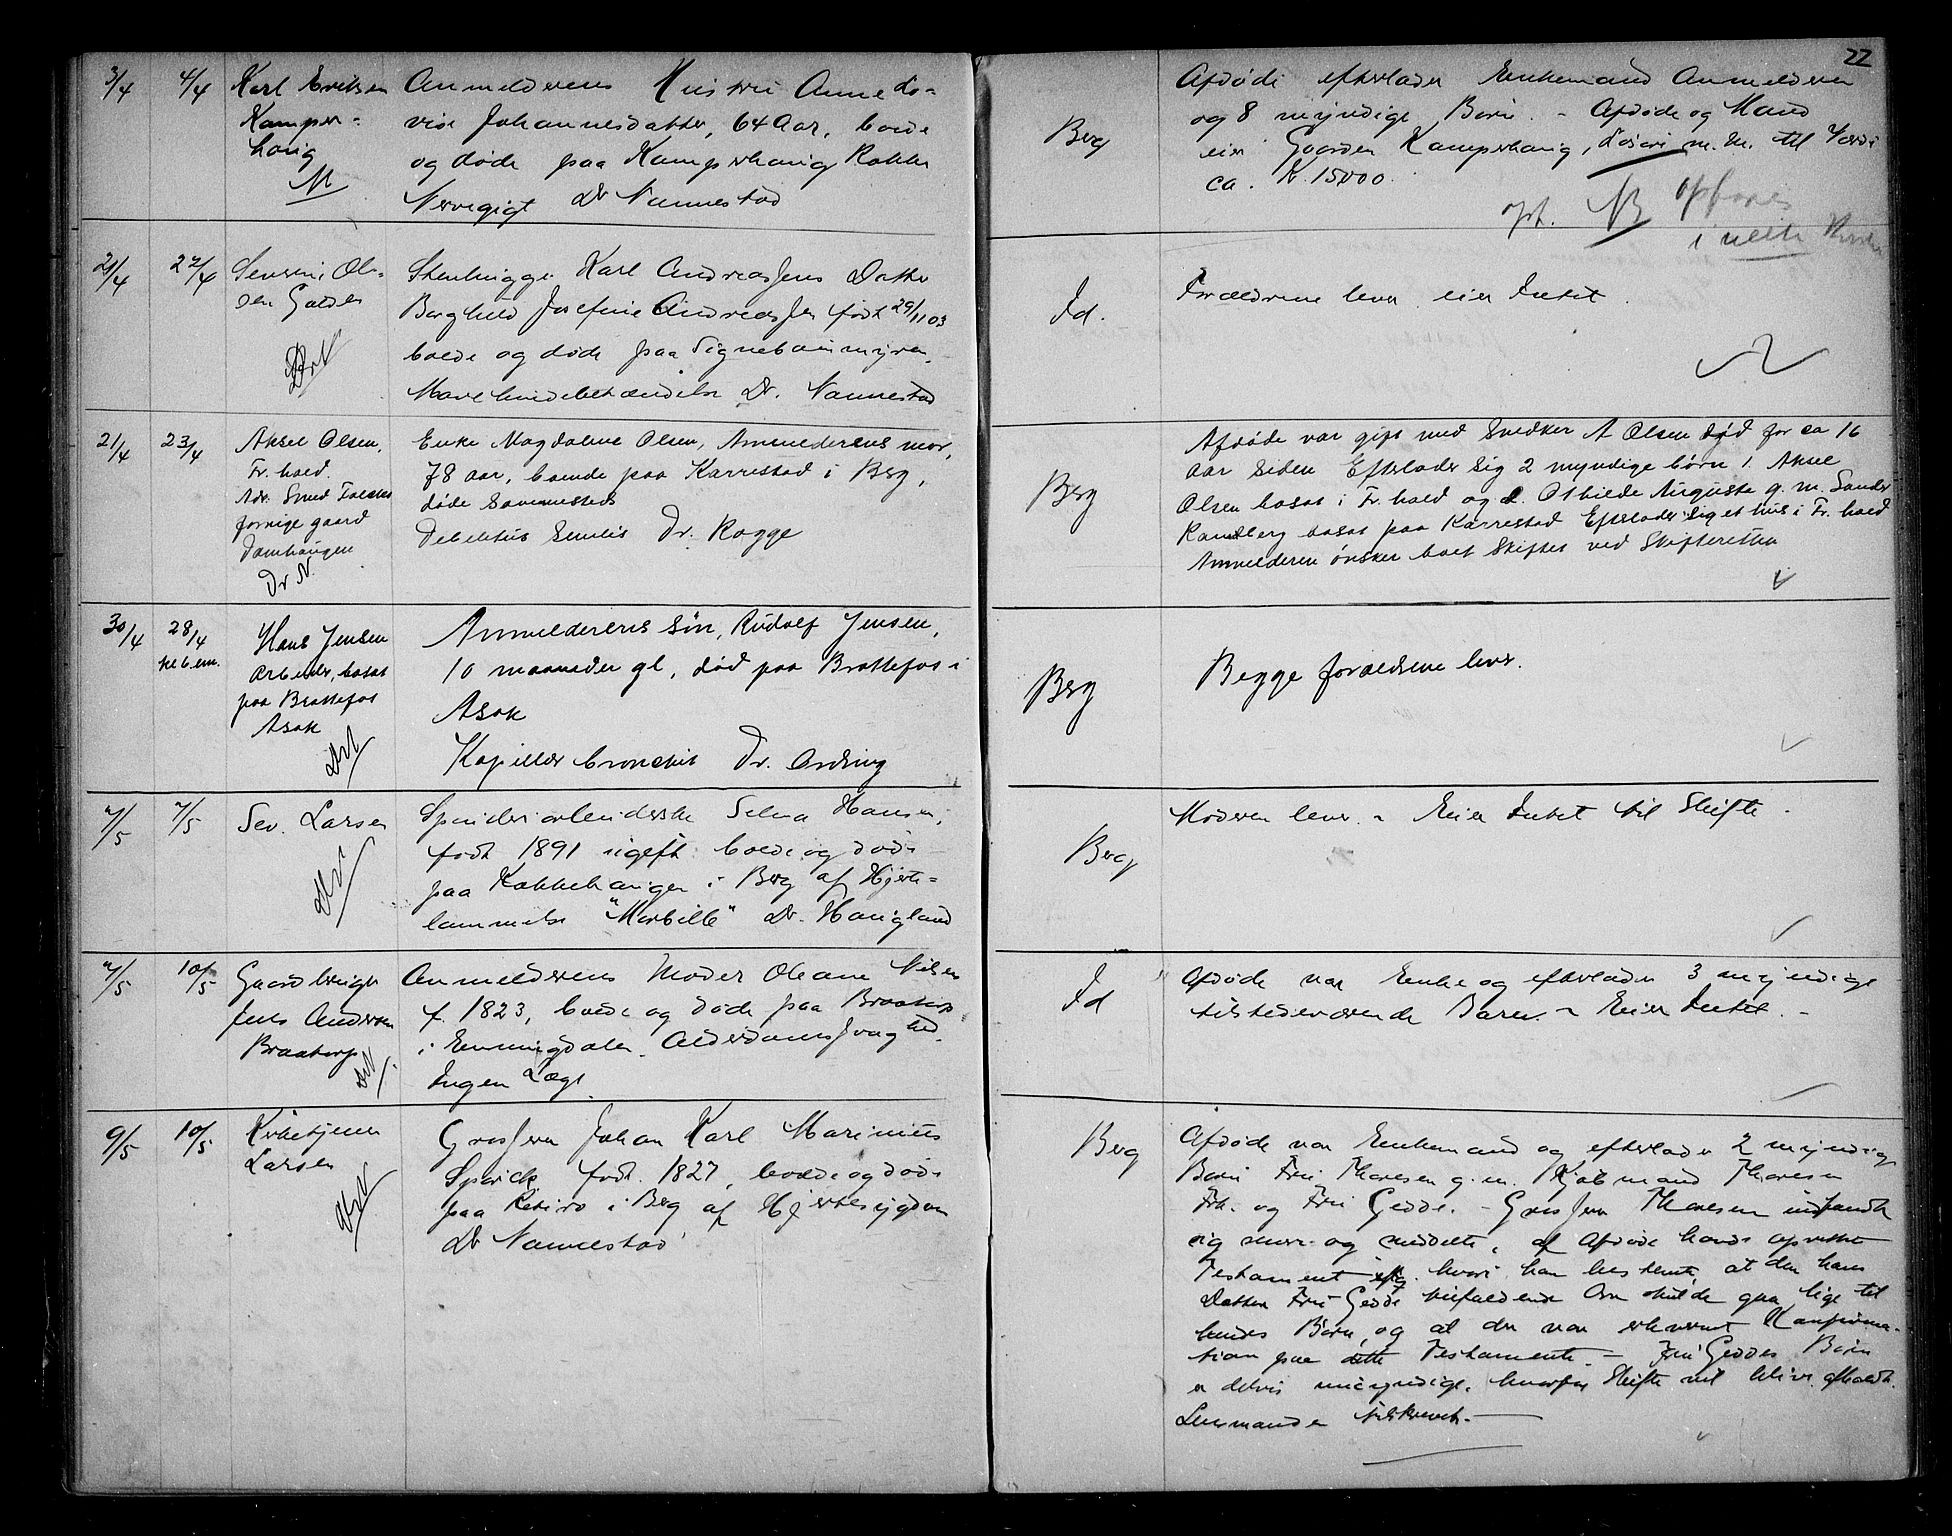 22
3/4 4/4 Karl Eriksen
Kamper-
haug
Anmelderens Hustru Anne Lo-
vise Johannesdatter, 64 Aar, boede
og døde paa Kamperhaug Rokke
Nervegigt Dr Nannestad
Berg
Afdøde efterlader Enkemand Anmelderen
og 8 myndige Børn. - Afdøde og Mand
eier Gaarden Kamperhaug, Løsøre m.m. til Værdi
ca. Kr. 15000.
NB opføres
i neste
21/4 22/4 Severin Ol-
sen Gatder
DrN
Stenhugger Karl Andreassens Datter
Borghild Josefine Andreassen født 29/11 03
boede og døde paa Signebøenmyren
Mavehindebetændelse Dr. Nannestad
Id.
Forældrene lever eier Intet.
21/4 23/4 Aksel Olsen,
Fr.hald.
Adr. Smed Falcks
forrige gaard
Damhaugen
Dr N.
Enke Magdalene Olsen, Anmelderens mor,
78 aar, boende paa Karrestad i Berg,
døde sammesteds
Debelitus Senilis Dr. Rogge
Berg
Afdøde var gift med Snedker A Olsen død for ca 16
aar siden Efterlader sig 2 myndige børn 1. Aksel
Olsen bosat i Fr.hald og 2. Othilde Auguste g. m. Sander
Ramberg bosat paa Karrestad Efterlader sig et hus i Fr.hald
Anmelderen ønsker boet skiftet ved Skifteretten
30/4 28/4
kl 6 em.
Hans Jensen
Arbeider, bosat
paa Brattefos
Asak
DrN
Anmelderens søn, Rudolf Jensen,
10 maaneder gl, død paa Brattefos i
Asak
Kapillær bronchit Dr. Ording
Berg
Begge forældrene lever.
4/5 7/5 Sev. Larsen
DrN
Spinderiarbeiderske Selma Hansen,
født 1891 ugift boede og døde
paa Kokkehaugen i Berg af Hjerte-
lammelse "Morbille" Dr. Haugland
Berg
Moderen lever. - Eier Intet til Skifte.
4/5 10/5 Gaardbruger
Jens Andersen
Braatorp
DrN
Anmelderens Moder Oleane Nilsen
f. 1823, boede og døde paa Braatorp
i Enningdalen. Alderdomssvaghed.
Ingen Læge
Id
Afdøde var Enke og efterlader 3 myndige
tilstedeværende Børn. - Eier Intet. -
9/5 10/5 Kirketjener
Larsen
DrN
Grosserer Johan Karl Marinius
født 1827, boede og døde
paa Retiro i Berg af Hjertesygdom
Dr Nannestad
Berg
Afdøde var Enkemand og efterlader 2 myndige
Børn Fru Thoresen g.m. Kjøbmand Thoresen
Frh. og Fru Gedde. - Grosserer Thoresen indfandt
sig og meddelte, at Afdøde havde oprettet
Testament hvori han bestemte at den hans
Datter Fru Gedde tilfaldende Arv skulde gaa lige til
hendes Børn, og at der var erhvervet Konfirma-
tion paa dette Testamente. - Fru Geddes Børn
er delvis umyndige, hvorfor Skifte vil blive afholdt.
Lensmanden tilskrevet. -